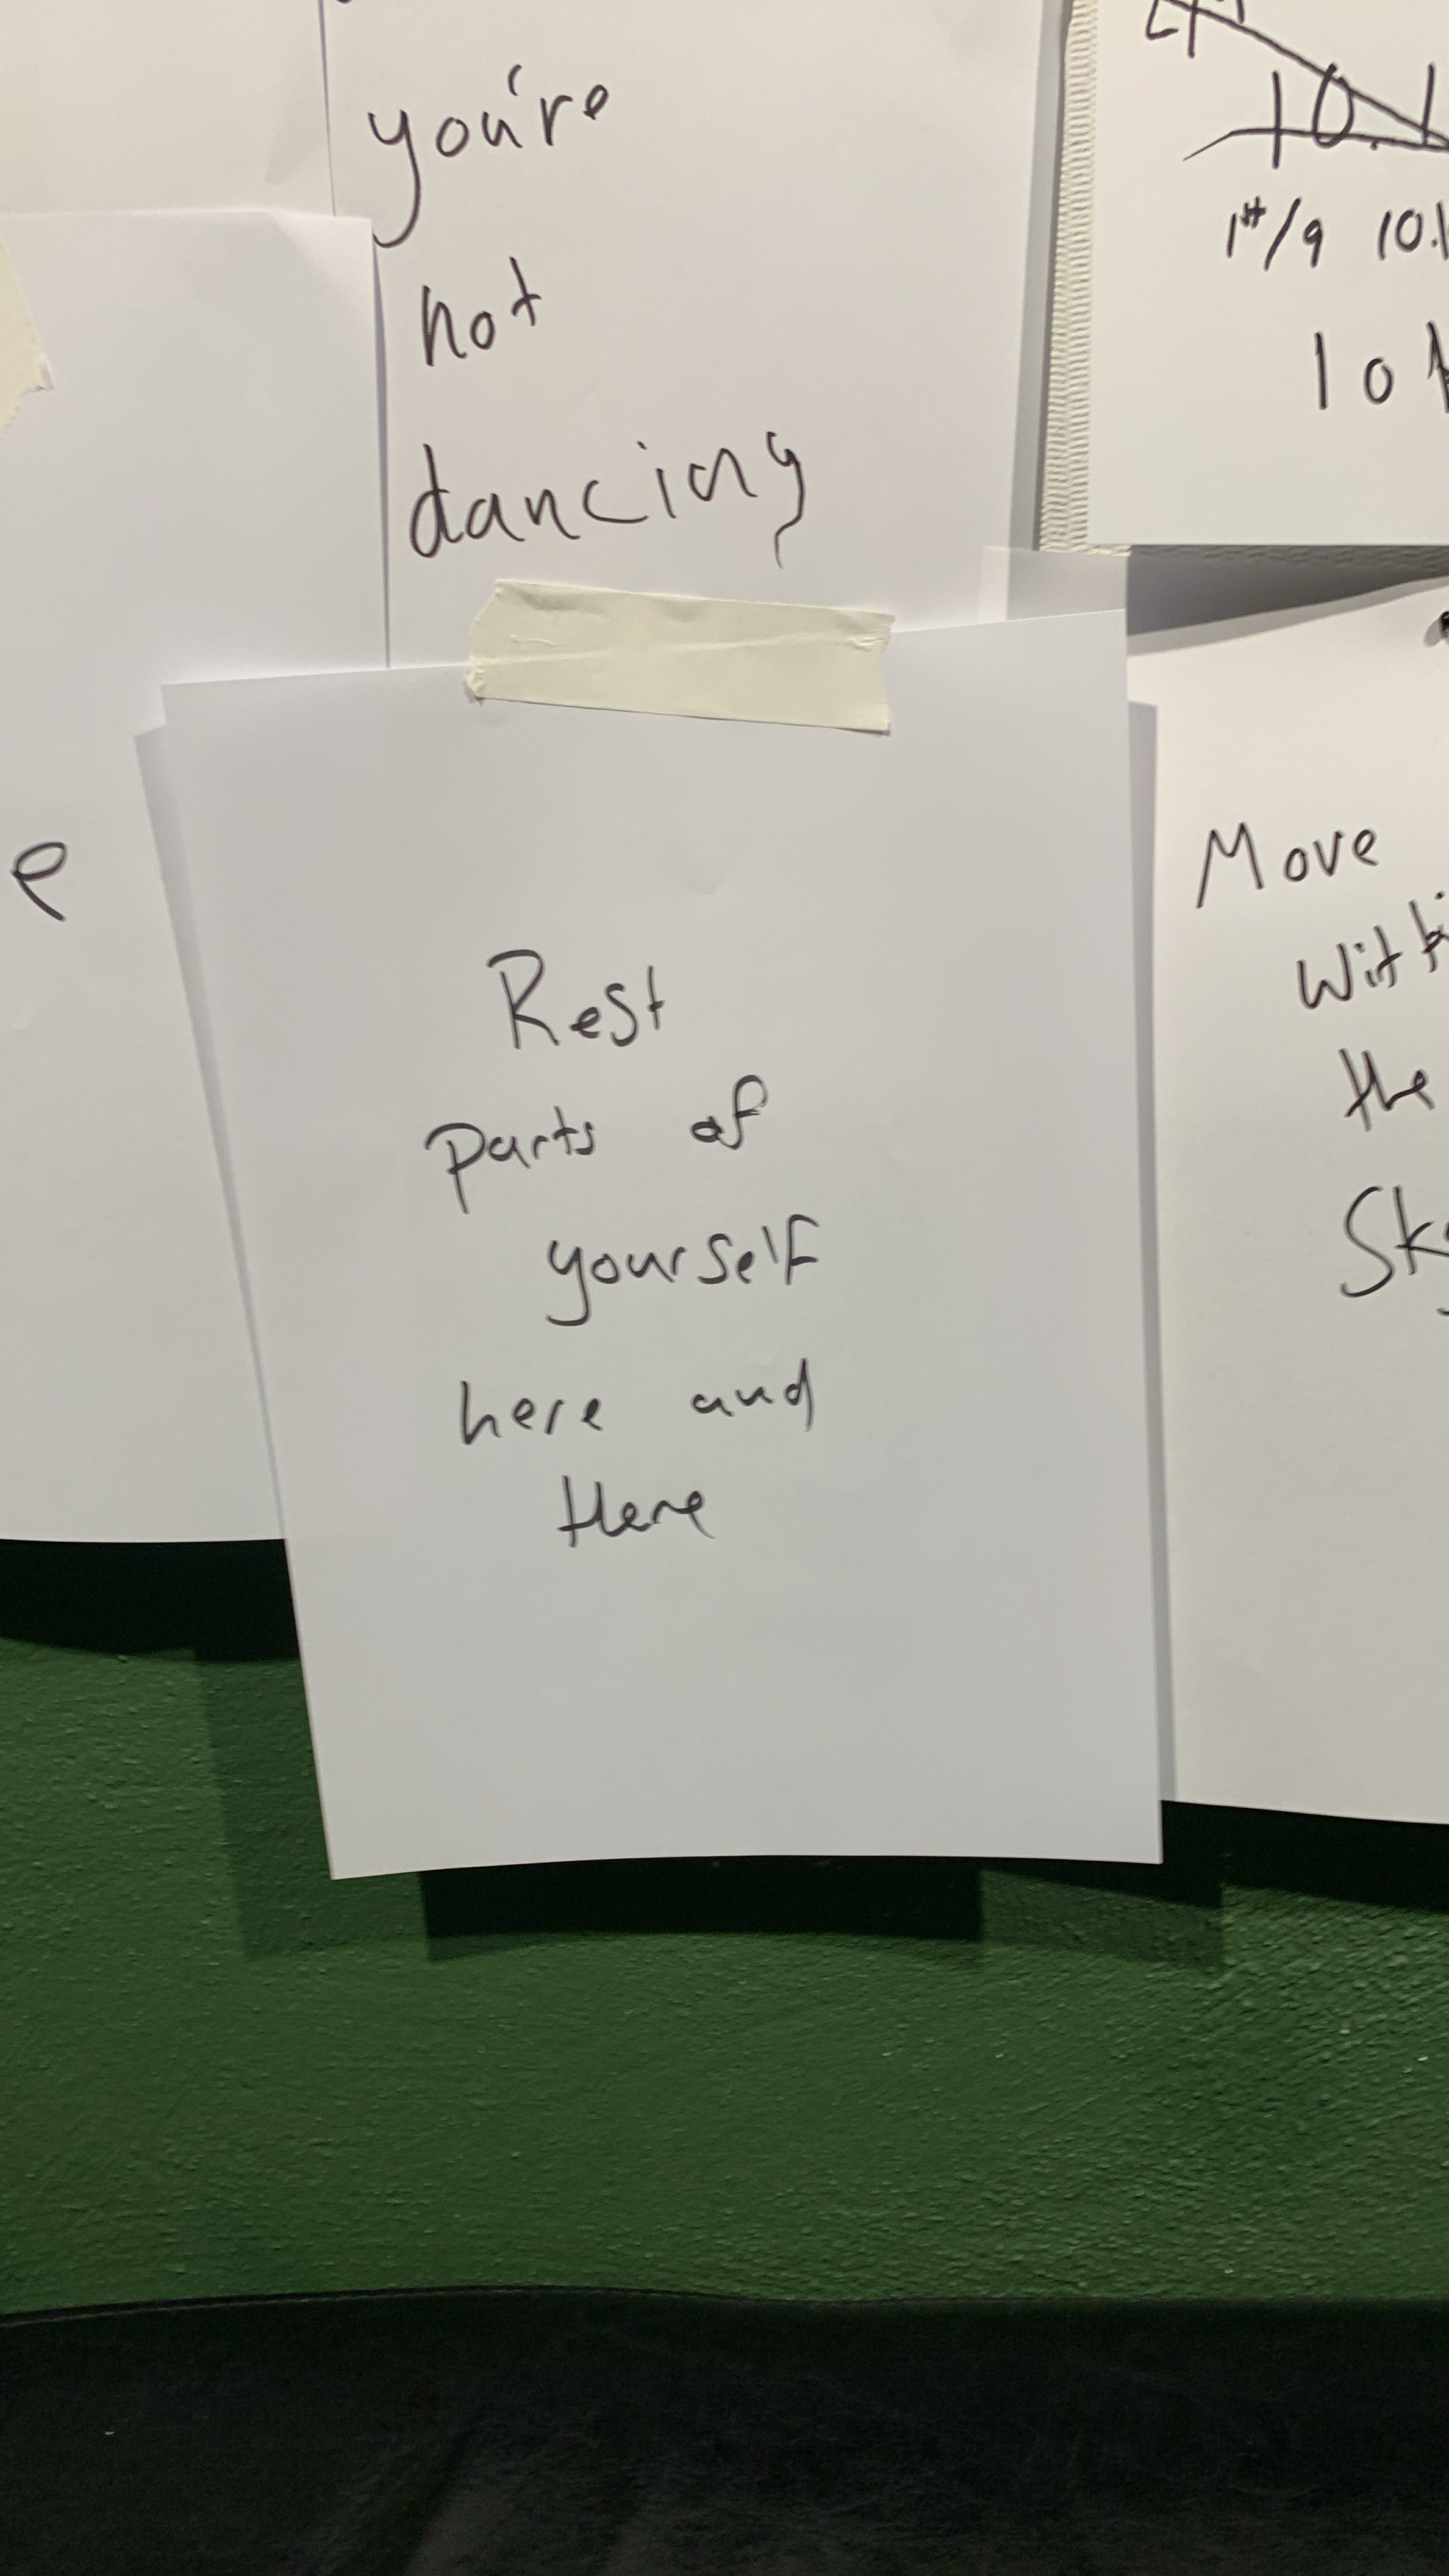 you're
not
dancing
1st/9 10.1
10
e
Rest
parts of
yourself
here and
there
Move
the